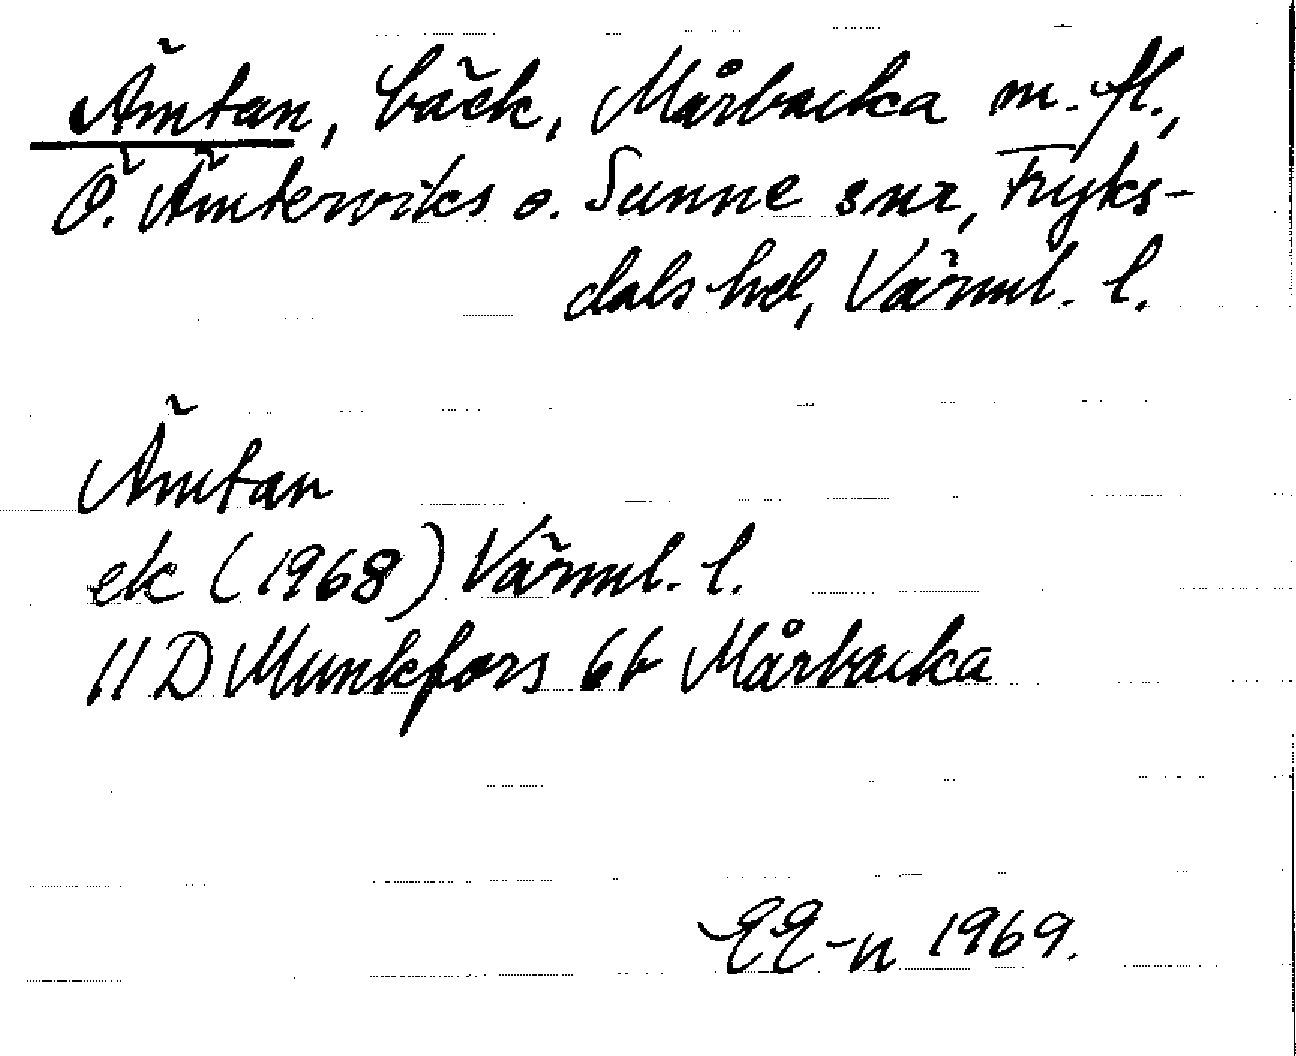 Ämtan, bäck, Mårbacka m. fl.,
Ö. Ämterviks o. Sunne snr, Fryks-
dals hd, Värml. l.
Ämtan
ek (1968) Värml. l.
11 D Munkfors 6b Mårbacka
EE-n 1969.